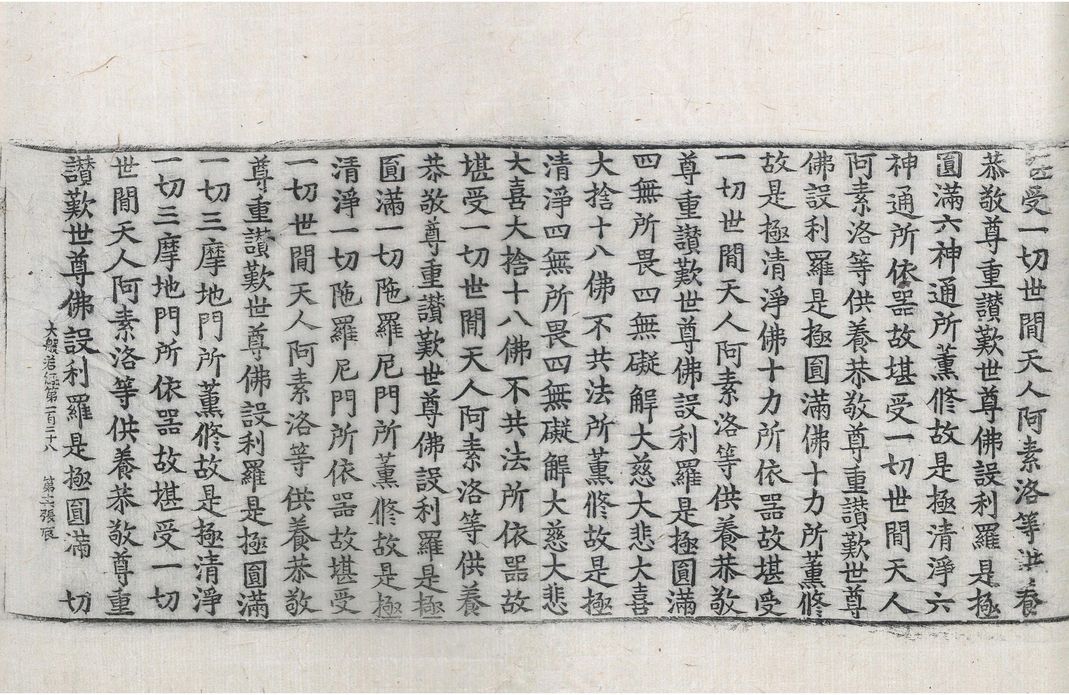 受一切世間天人阿素洛等供養
恭敬尊重讃歎世尊佛設利羅是極
圓滿六神通所薰修故是極清淨六
神通所依器故堪受一切世間天人
阿素洛等供養恭敬尊重讃歎世尊
佛設利羅是極圓滿佛十力所薰修
故是極清淨佛十力所依器故堪受
一切世間天人阿素洛等供養恭敬
尊重讃歎世尊佛設利羅是極圓滿
四無所畏四無礙解大慈大悲大喜
大捨十八佛不共法所薰修故是極
清淨四無所畏四無礙解大慈大悲
大喜大捨十八佛不共法所依器故
堪受一切世間天人阿素洛等供養
恭敬尊重讃歎世尊佛設利羅是極
圓滿一切陁羅尼門所薰修故是極
清淨一切陁羅尼門所依器故堪受
一切世間天人阿素洛等供養恭敬
尊重讃歎世尊佛設利羅是極圓滿
一切三摩地門所薰修故是極清淨
一切三摩地門所依器故堪受一切
世間天人阿素洛等供養恭敬尊重
讃歎世尊佛設利羅是極圓滿 切
大般若經第一百二十八 張